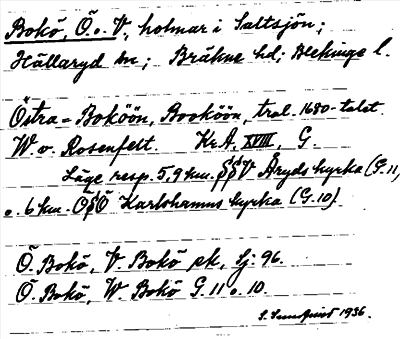 Bokö, Ö. o. V., holmar i Saltsjön;
Hällaryd sn; Bräkne hd; Blekinge l.
Östra-Boköön, Booköön, trol. 1680-talet.
W. v. Rosenfelt. Kr.A. XVIII, G.
Läge resp. 5,9 km. S§V Åryds kyrka (G.11)
o. 6 km. O§Ö Karlshamns kyrka (G.10).
Ö. Bokö, V. Bokö sk, Sj: 96.
Ö. Bokö, W. Bokö G. 11 o. 10.
S. 1936.